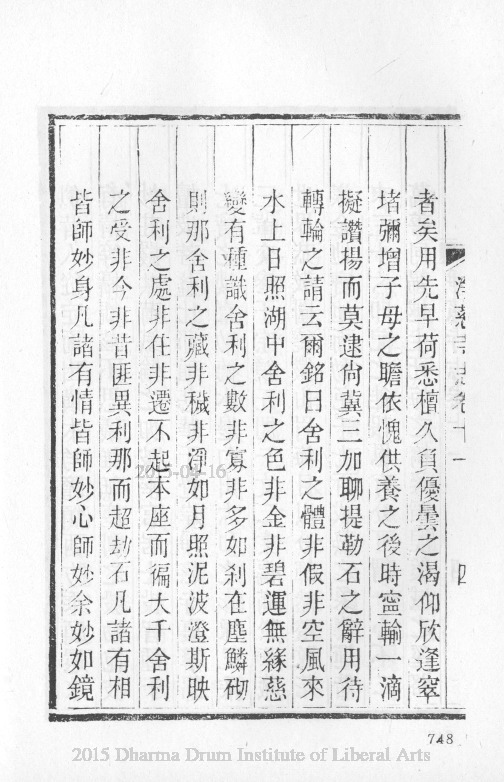 淨慈寺志卷十一 四
者矣用先早荷悉檀久負優曇之渴仰欣逢窣
堵彌增子母之瞻依愧供養之後時寍輸一滴
擬讚揚而莫逮尙冀三加聊提勒石之辭用待
轉輪之請云爾銘曰舍利之體非假非空風來
水上日照湖中舍利之色非金非碧運無緣慈
變有種識舍利之數非寡非多如刹在塵鱗砌
則那舍利之藏非穢非淨如月照泥波澄斯映
舍利之處非住非遷不起本座而徧大千舍利
之受非今非昔匪異利那而超劫石凡諸有相
皆師妙身凡諸有情皆師妙心師妙余妙如鏡
748
2015-04-16
2015 Dharma Drum Institute of Liberal Arts